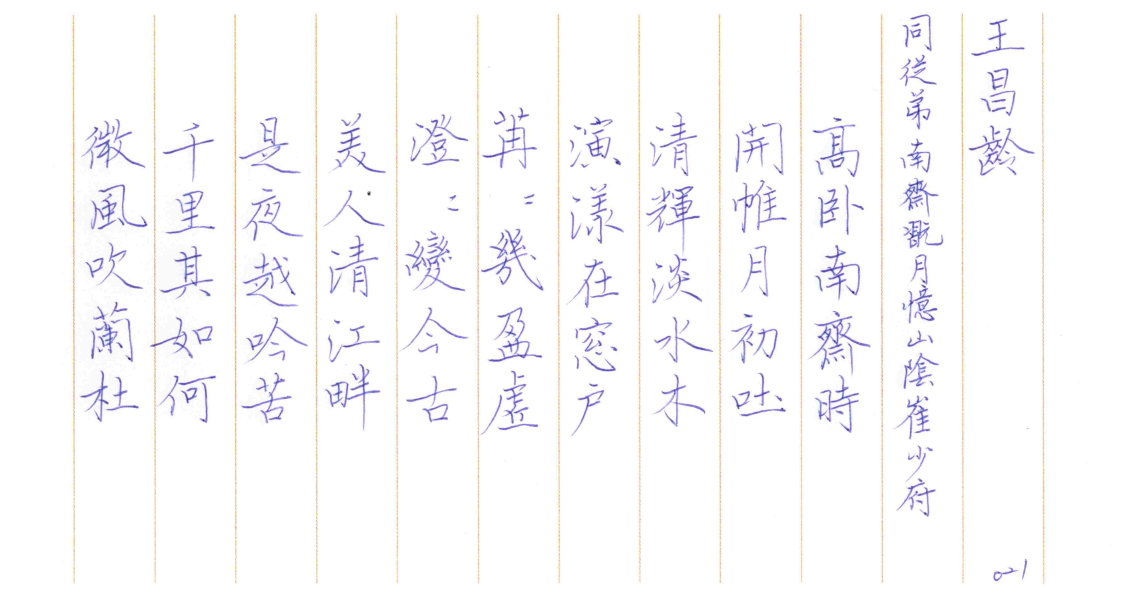 王昌齡
同從弟南齋翫月憶山陰崔少府
高卧南齋時
開帷月初吐
清輝淡水木
演漾在窓户
苒〻幾盈虛
澄〻變今古
美人清江畔
是夜越吟苦
千里其如何
微風吹蘭杜
021